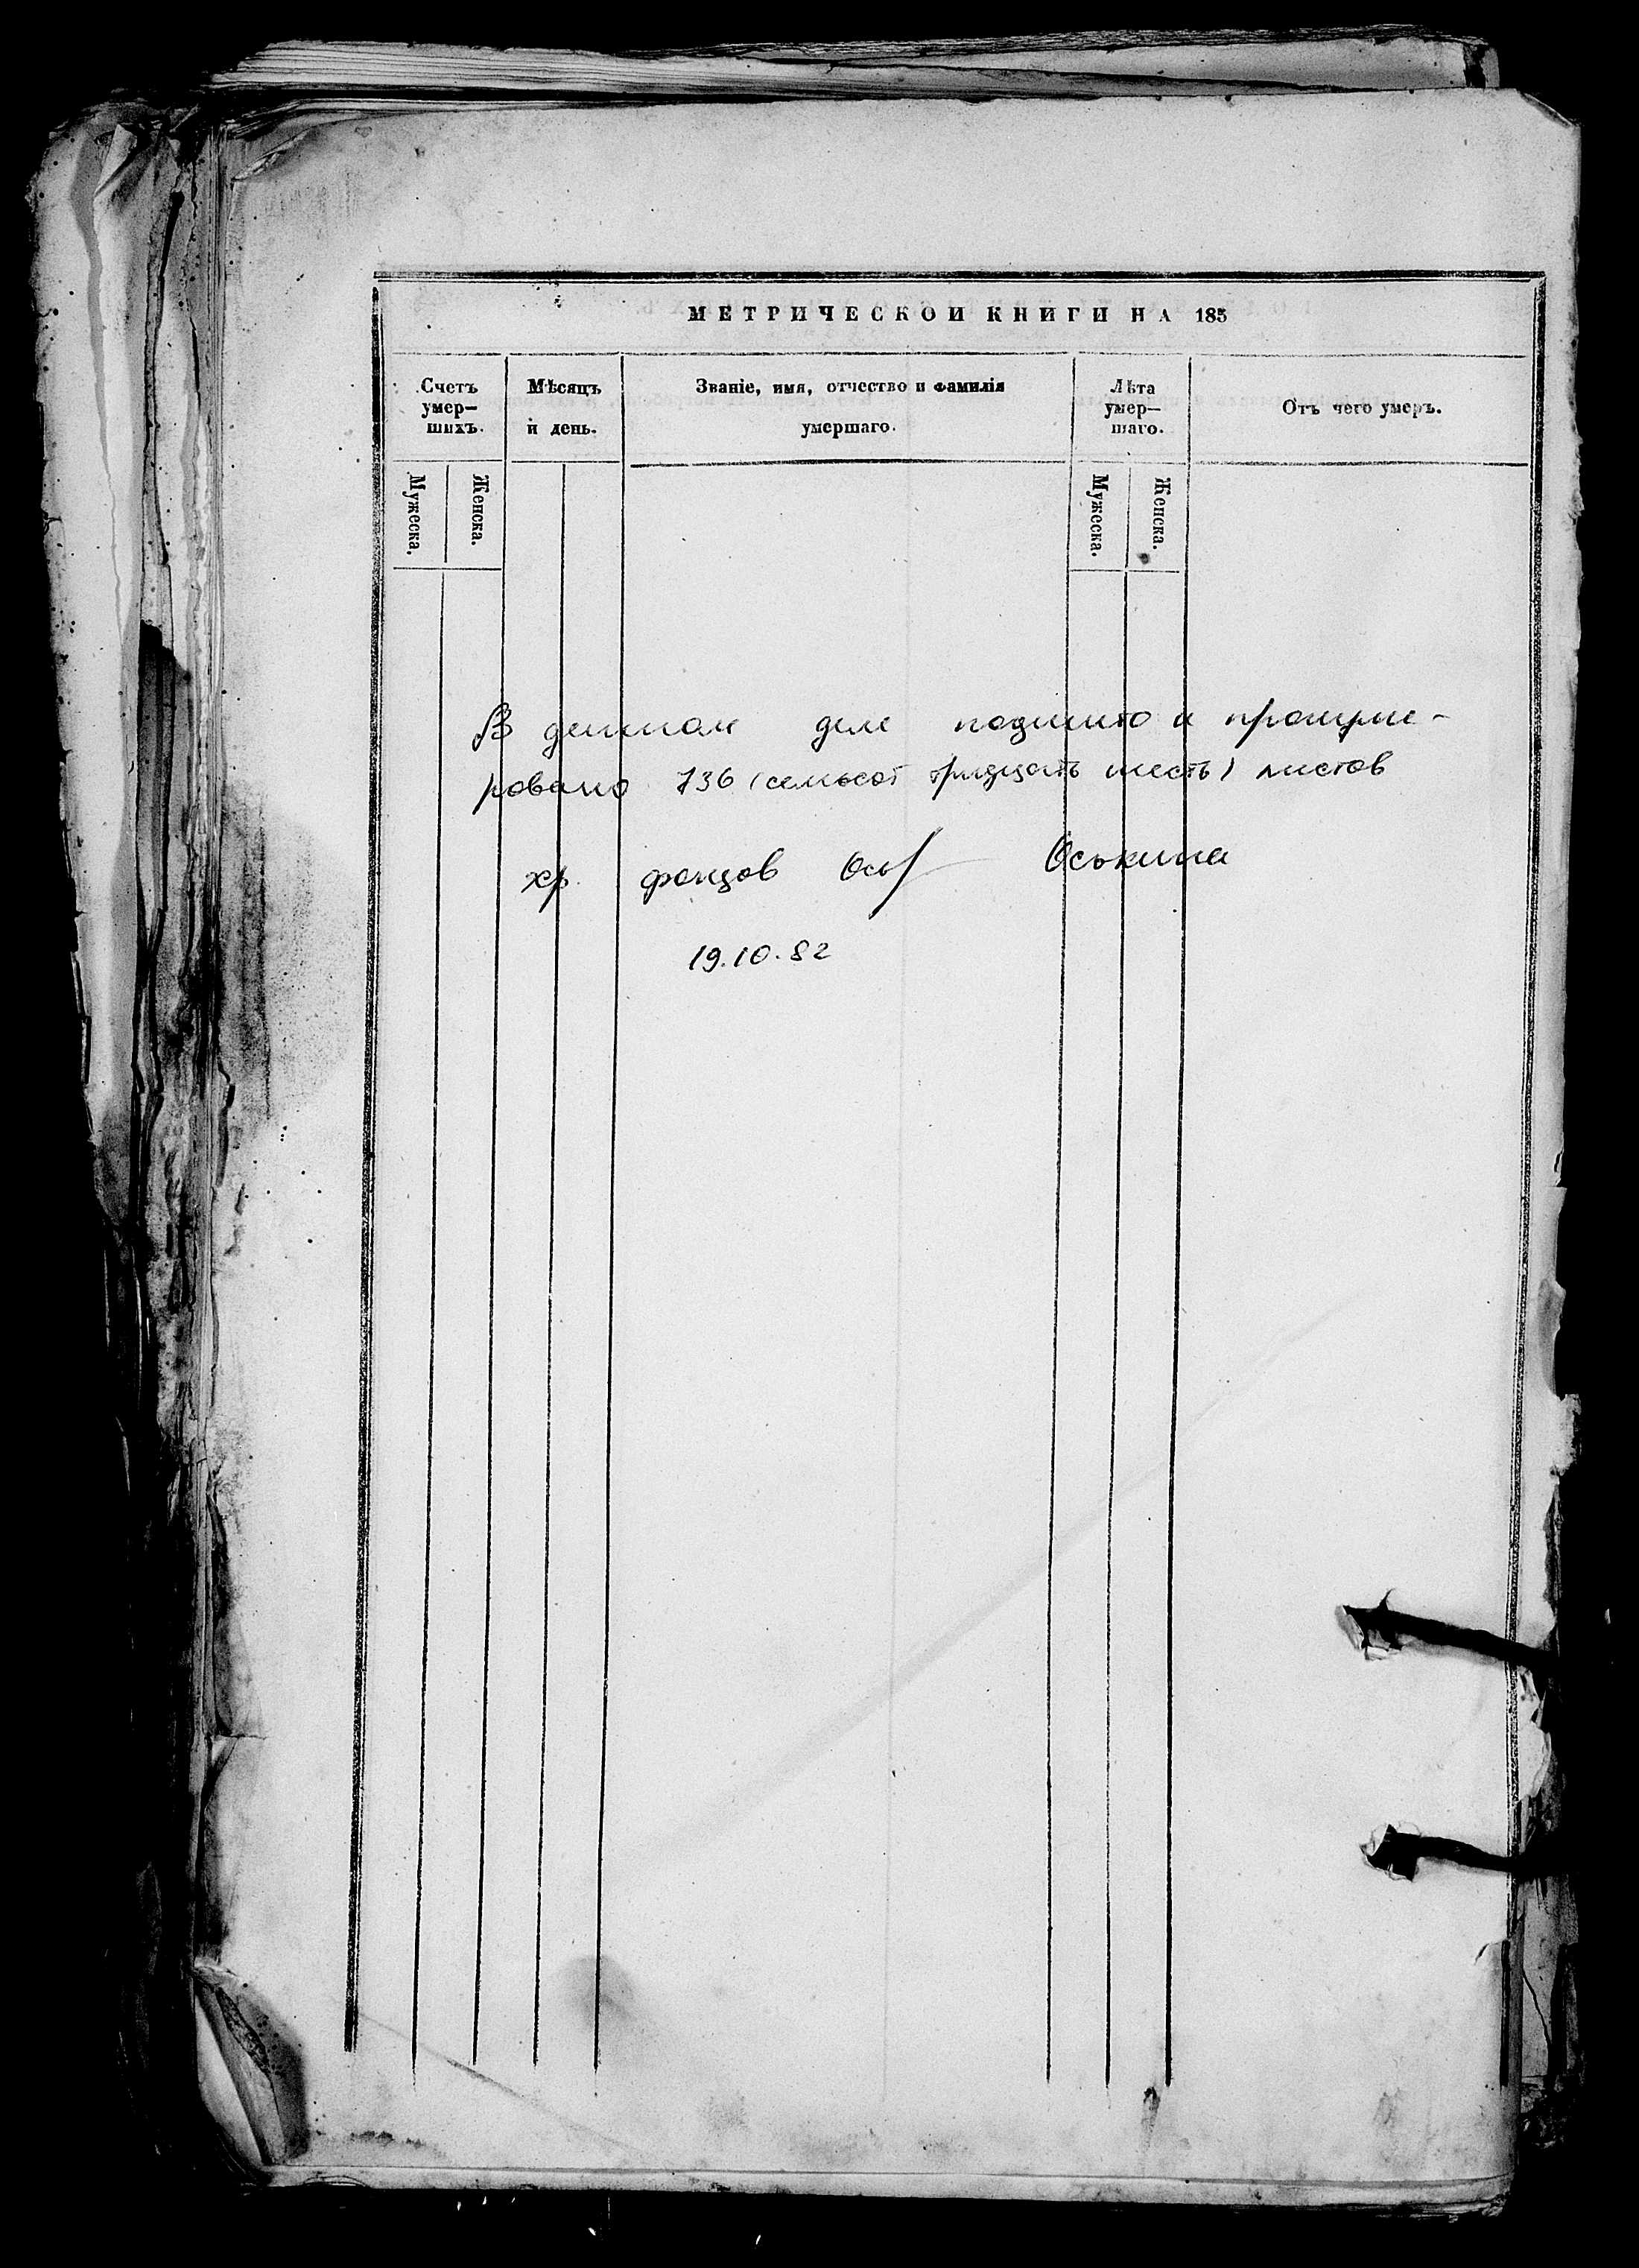 МЕТРИЧЕСКОЙ КНИГИ НА 185
Счетъ умер–шихъ.
Мѣсяцъ и день.
Званіе, имя, отчество и фамилія умершаго.
Лѣта умер–шаго.
Отъ чего умеръ.
Мужеска.
Женска.
Мужеска.
Женска.
В данном деле подшито и пронуме-
ровано 736 (семьсот тридцать шесть) листов
хр. фондов Оськина
19.10.82